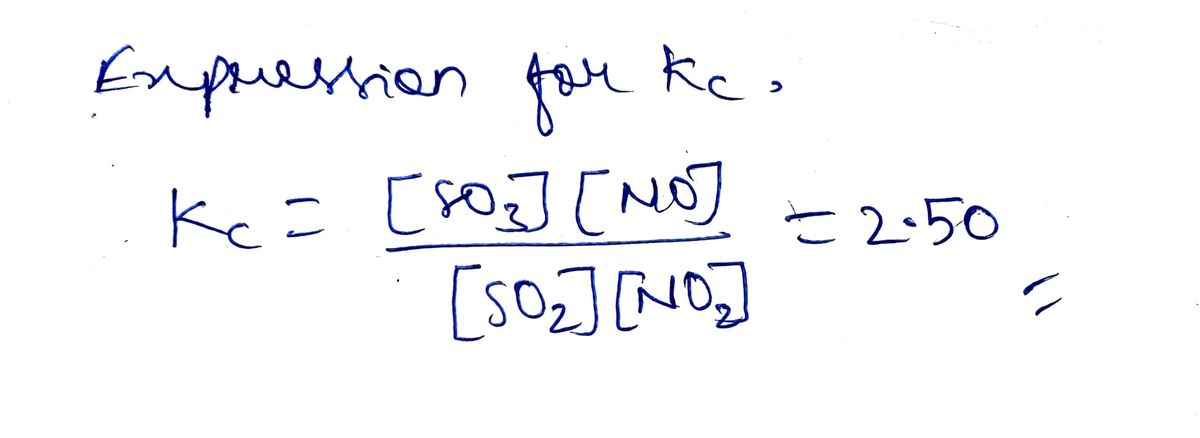 Expression for Kc,
Kc = [SO3] [NO] = 2.50
[SO2] [NO2] =